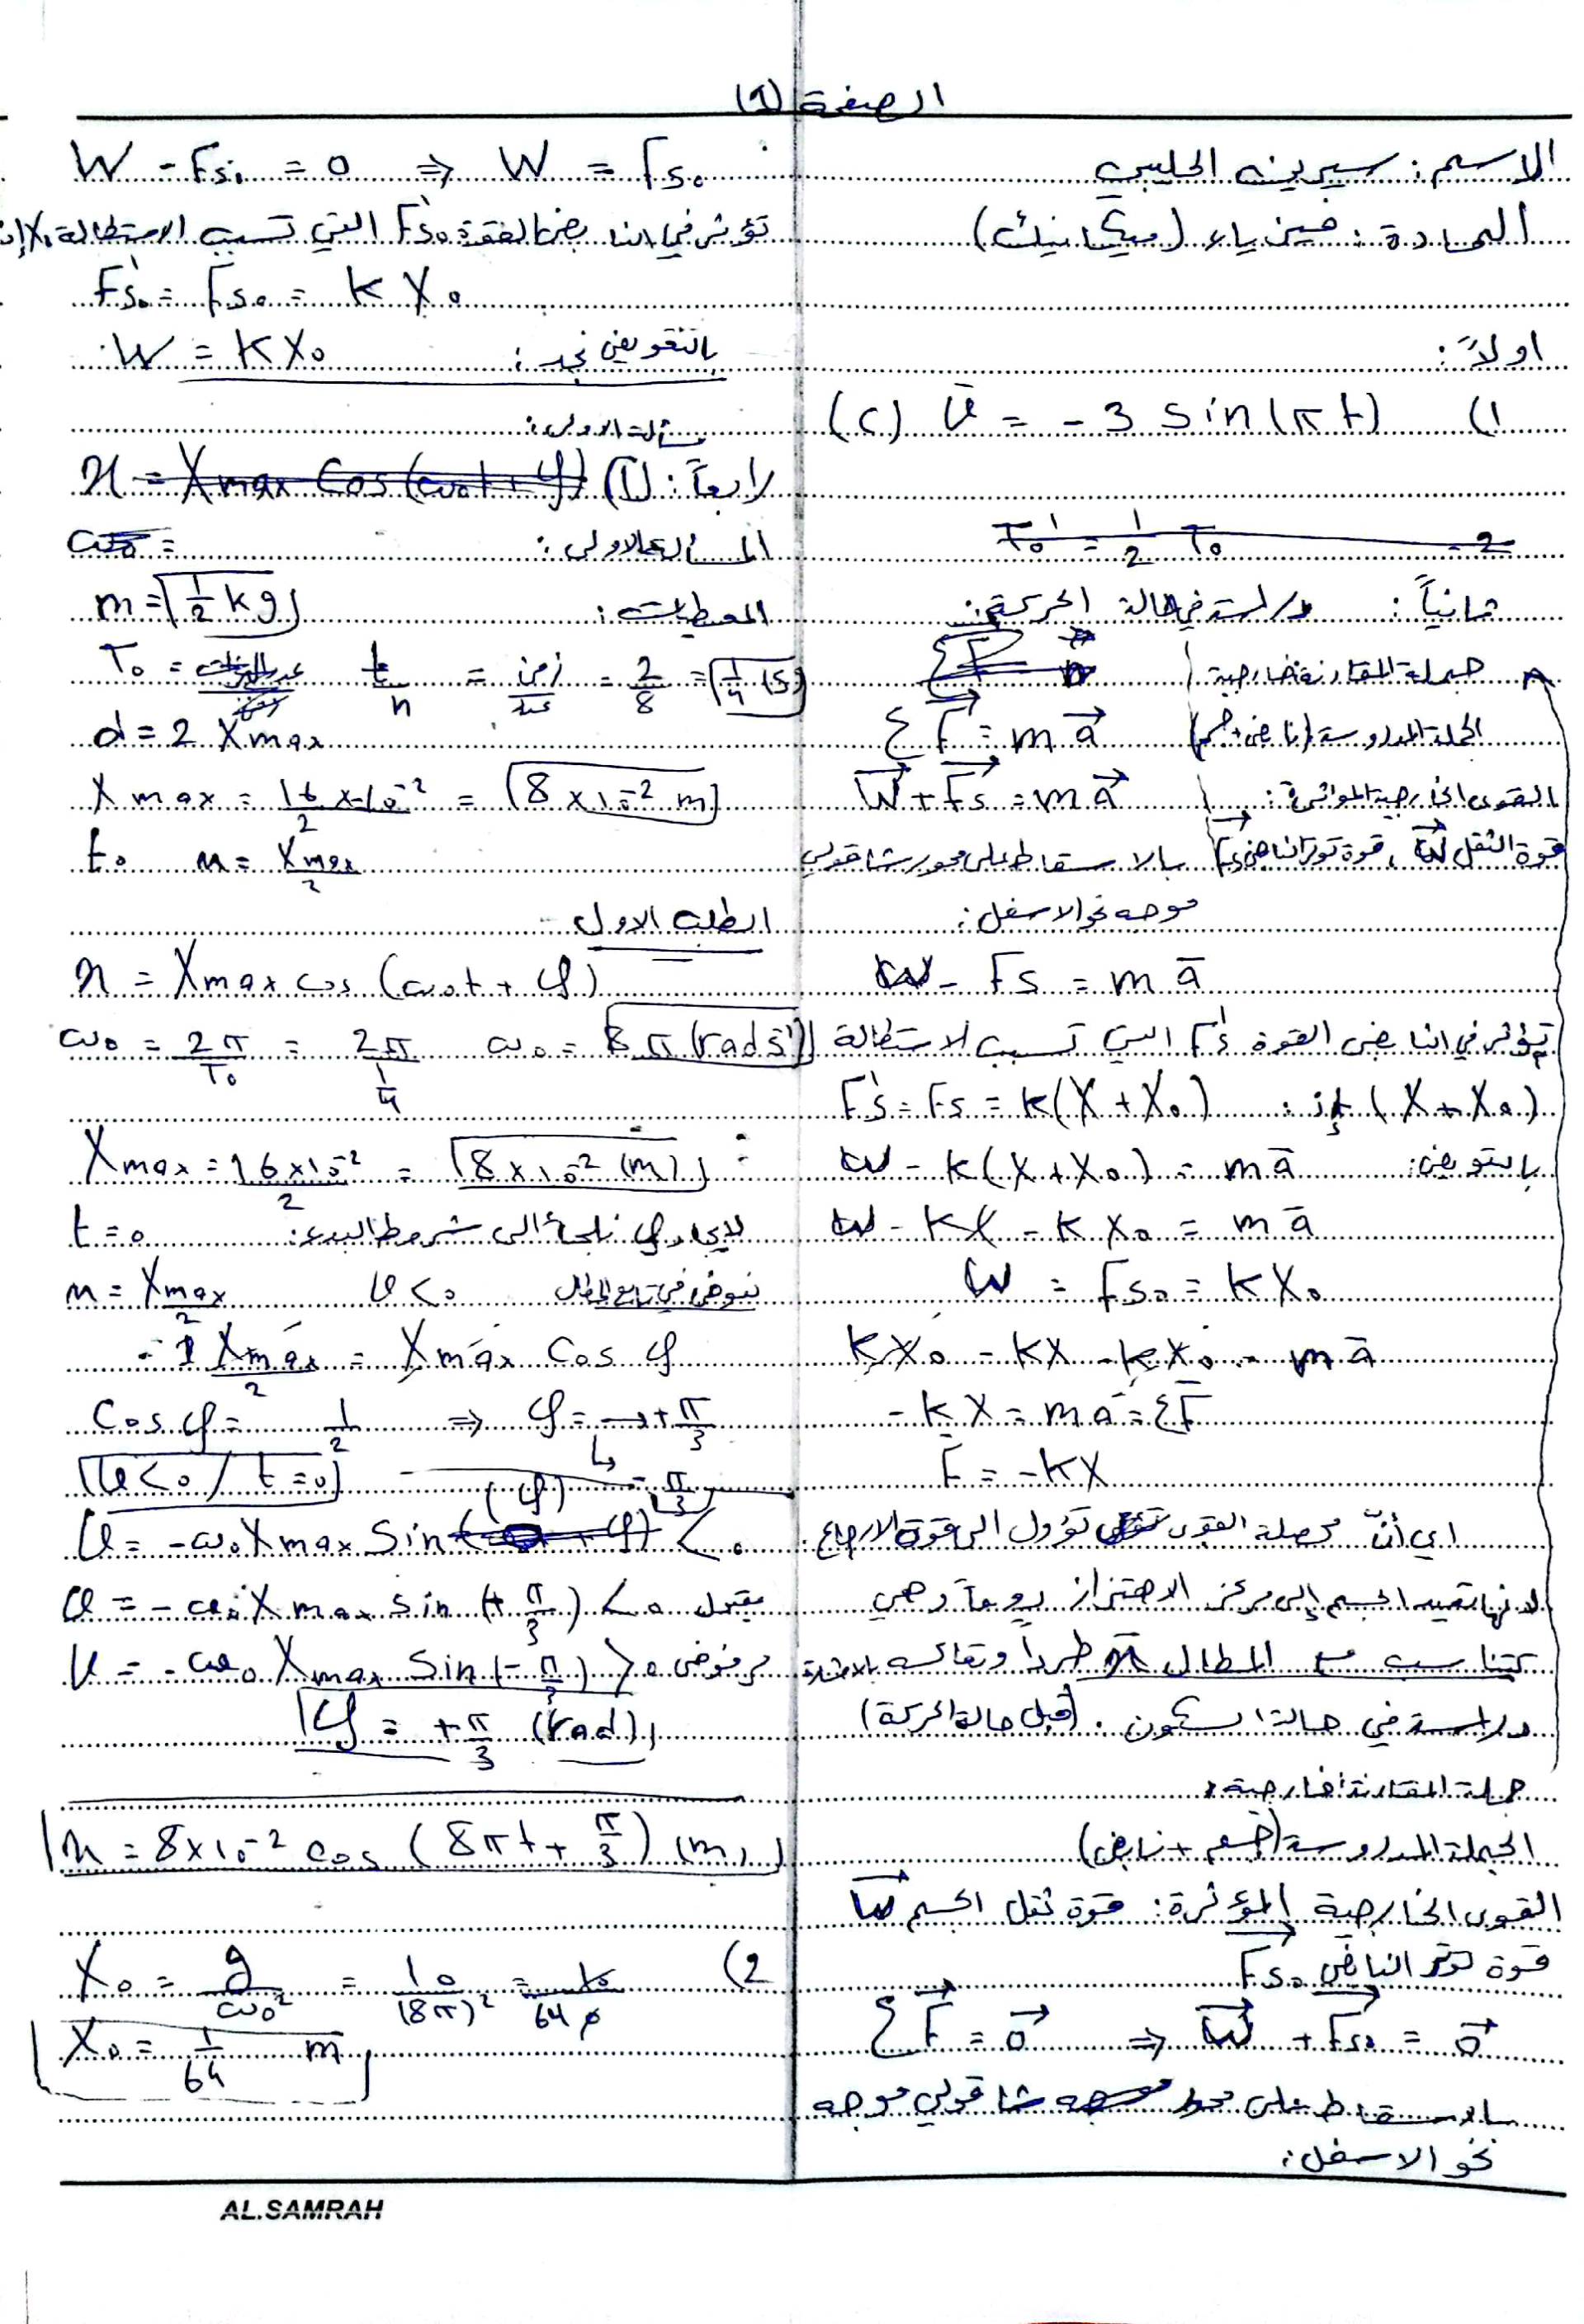 الصفحة (1)
الاسم: سيرين الحلبي
المادة: فيزياء (ميكانيك)
اولاً:
1) (c) v̄ = -3 sin(πt)
2- T₀' = 1/2 T₀
ثانياً: دراسة في حالة الحركة:
جملة المقارنة خارجية
الجملة المدروسة (نابض + جسم) ΣF⃗ = m a⃗
القوى الخارجية المؤثرة: W⃗ + F⃗s = m a⃗
قوة الثقل W⃗، قوة توتر النابض F⃗s بالاسقاط على محور شاقولي
موجه نحو الاسفل:
W - Fs = m ā
تؤثر في النابض القوة F's التي تسبب الاستطالة
(X + X₀) : F's = Fs = k(X + X₀)
بالتعويض: W - k(X + X₀) = m ā
W - kX - kX₀ = m ā
W = Fs₀ = kX₀
kX₀ - kX - kX₀ = m ā
-kX = m ā = ΣF̄
F = -kX
اي أنّ محصلة القوى تؤول الى قوة الارجاع
لانها تعيد الجسم إلى مركز الاهتزاز دوماً وهي
تتناسب مع المطال x̄ طرداً وتعاكسه بالاشارة
دراسة في حالة السكون. (قبل حالة الحركة)
جملة المقارنة خارجية:
الجملة المدروسة (جسم + نابض)
القوى الخارجية المؤثرة: قوة ثقل الجسم W⃗
قوة توتر النابض F⃗s₀
ΣF⃗ = 0⃗ ⇒ W⃗ + F⃗s₀ = 0⃗
بالاسقاط على محور شاقولي موجه
نحو الاسفل:
W - Fs₀ = 0 ⇒ W = Fs₀
تؤثر في النابض القوة F's₀ التي تسبب الاستطالة X₀
F's₀ = Fs₀ = k X₀
بالتعويض نجد: W = kX₀
مسألة الاولى:
رابعاً: (1) x = Xmax cos(ω₀t + φ)
المسألة الاولى: ω₀ =
المعطيات: m = 1/2 kg
T₀ = t/n = زمن/عدد = 2/8 = 1/4 (s)
d = 2 Xmax
Xmax = 16×10⁻²/2 = 8×10⁻² m
t₀ x = Xmax/2
الطلب الاول
x = Xmax cos(ω₀t + φ)
ω₀ = 2π/T₀ = 2π/(1/4) ω₀ = 8π (rad s⁻¹)
Xmax = 16×10⁻²/2 = 8×10⁻² (m)
لايجاد φ نلجأ الى شروط البدء: t = 0
x = Xmax/2 v<0 نعوض في تابع المطال
Xmax/2 = Xmax cos φ
cos φ = 1/2 ⇒ φ = +π/3
v<0 / t=0 -π/3
v = -ω₀ Xmax sin (φ) < 0
v = -ω₀ Xmax sin(+π/3) < 0 يقبل
v = -ω₀ Xmax sin(-π/3) > 0 مرفوض
φ = +π/3 (rad)
x = 8×10⁻² cos(8πt + π/3) (m)
2) X₀ = g/ω₀² = 10/(8π)² = 10/64
X₀ = 1/64 m
AL.SAMRAH